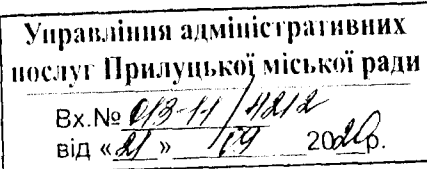 Управління адміністративних
послуг Прилуцької міської ради
Вх.№ 013-11/4212
від «21» 2020р.